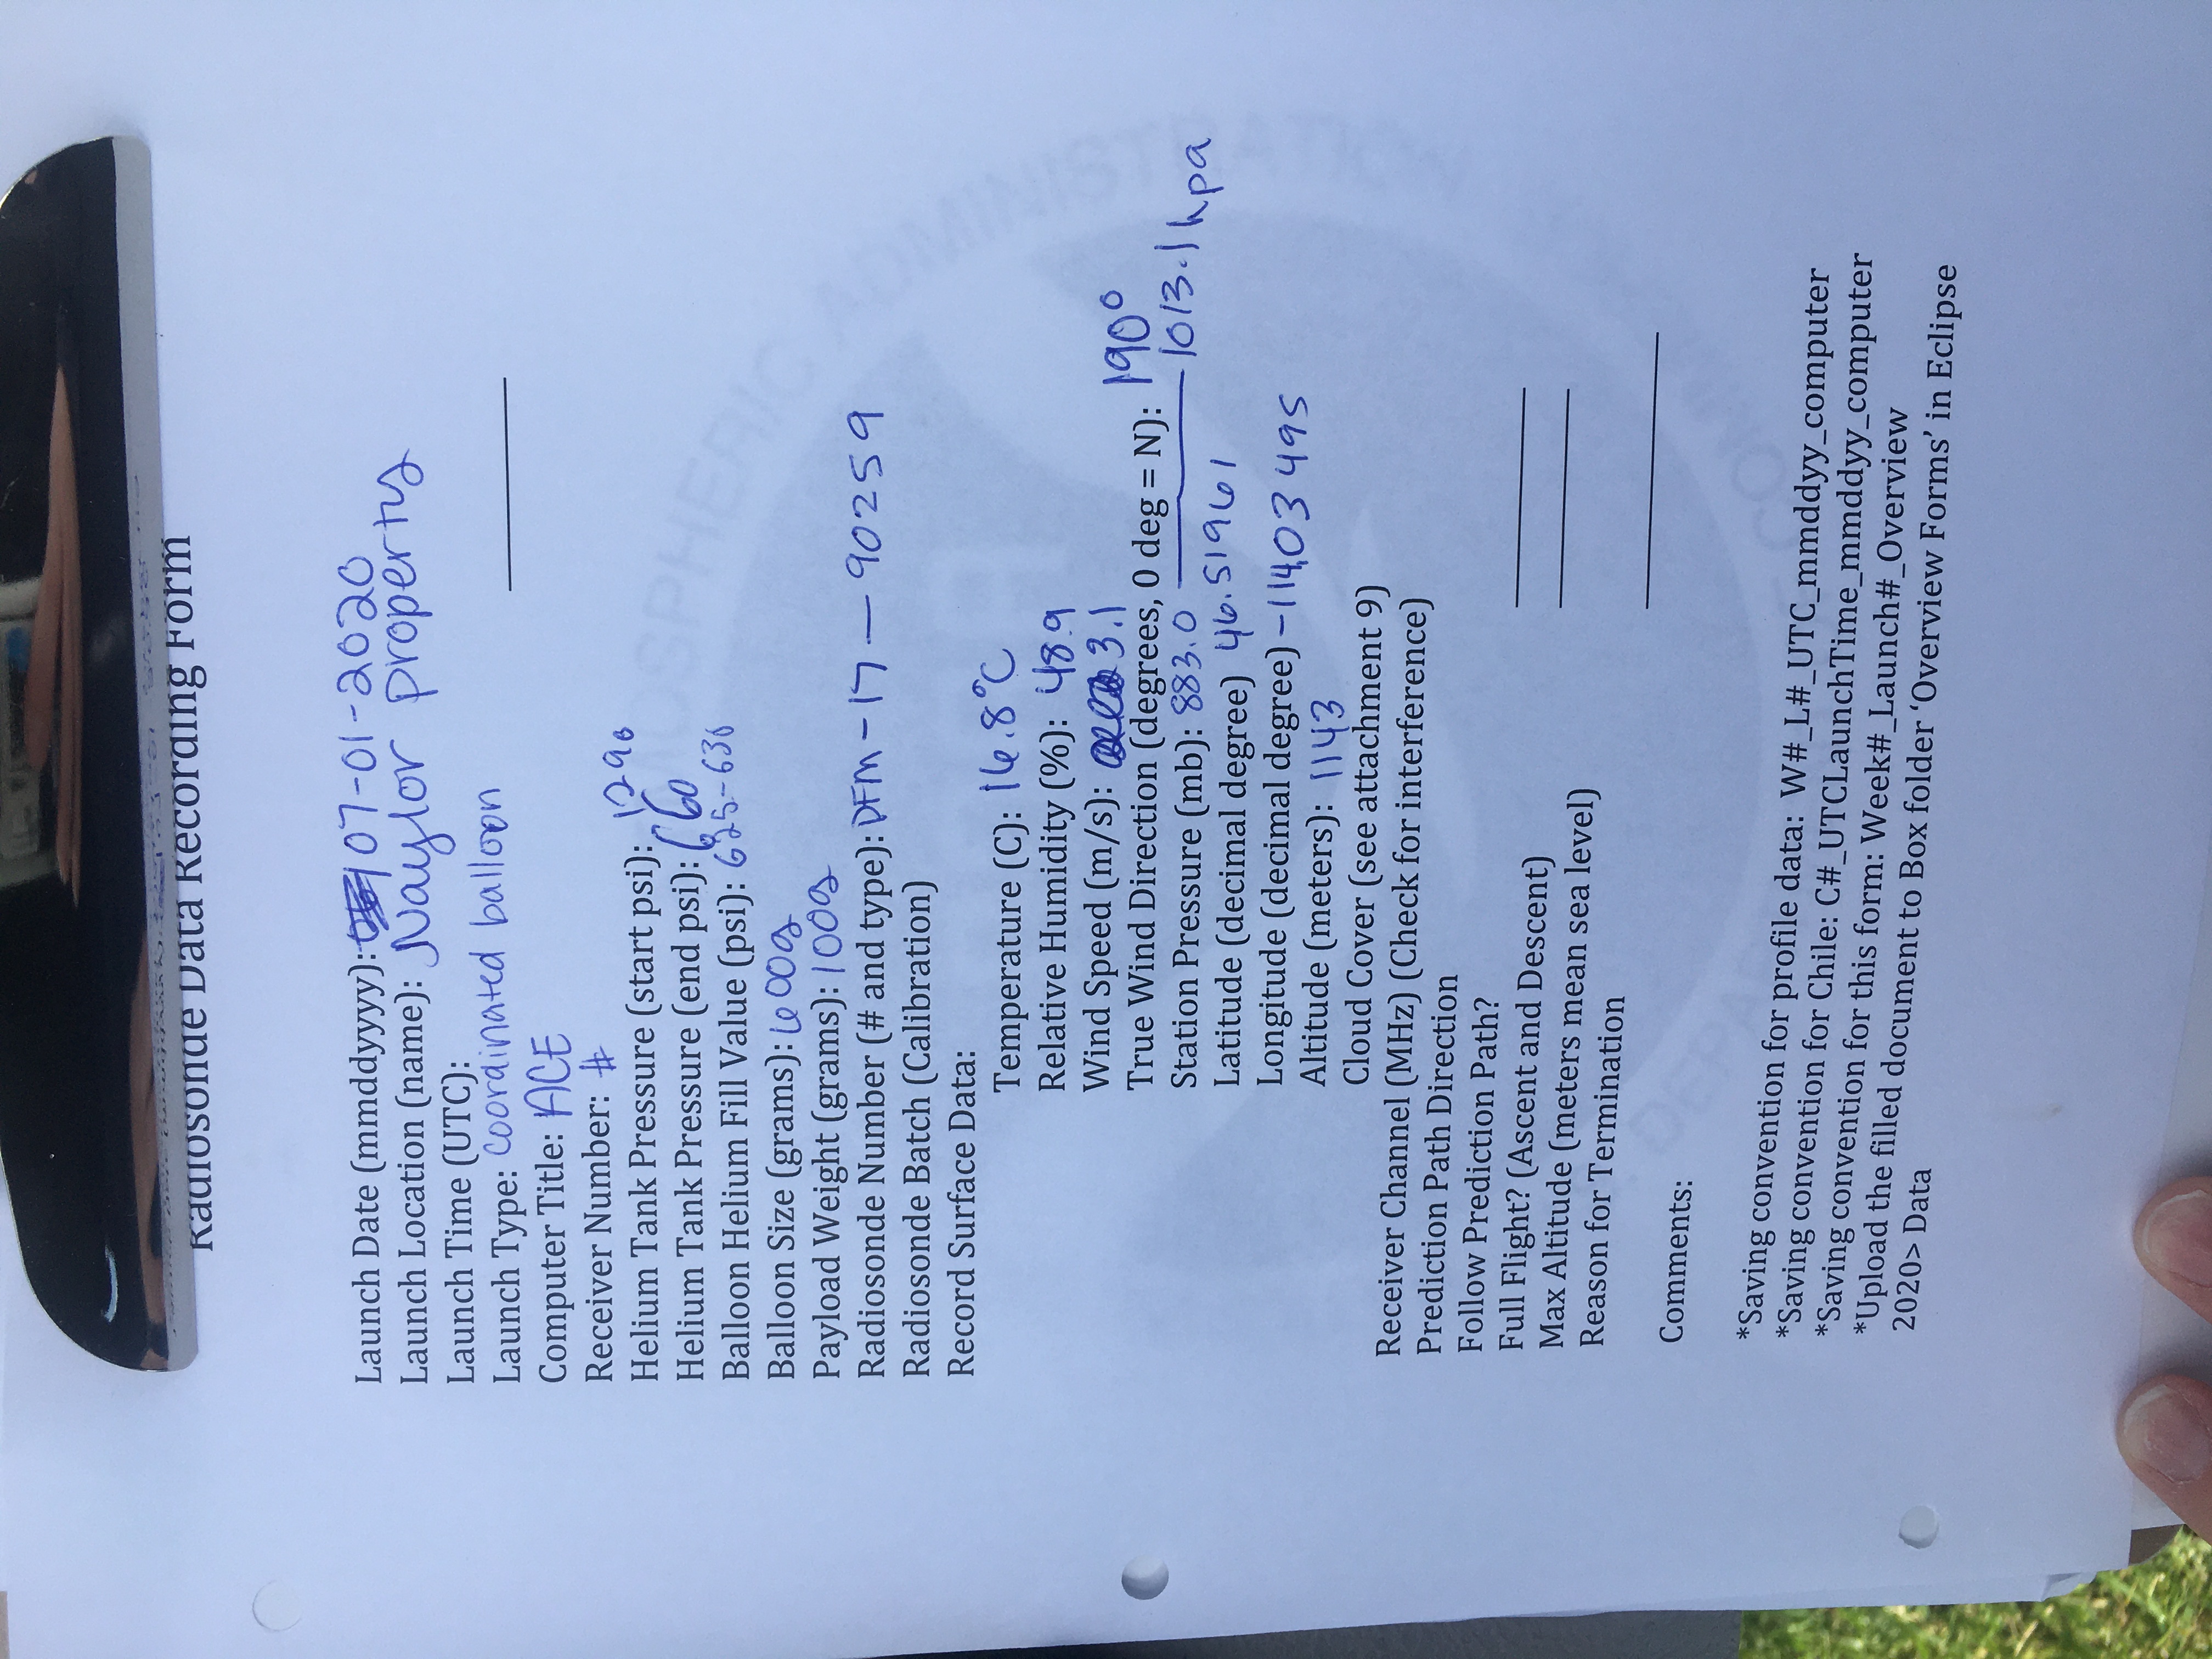 Radiosonde Data Recording Form
Launch Date (mmddyyyy): 07-01-2020
Launch Location (name): Naylor property
Launch Time (UTC):
Launch Type: coordinated balloon
Computer Title: ACE
Receiver Number: #
Helium Tank Pressure (start psi): 1290
Helium Tank Pressure (end psi): 660
Balloon Helium Fill Value (psi): 625-630
Balloon Size (grams): 600g
Payload Weight (grams): 100g
Radiosonde Number (# and type): DFM-17-90259
Radiosonde Batch (Calibration)
Record Surface Data:
Temperature (C): 16.8°C
Relative Humidity (%): 48.9
Wind Speed (m/s): 3.1
True Wind Direction (degrees, 0 deg = N): 190°
Station Pressure (mb): 883.0 1013.1 hpa
Latitude (decimal degree) 46.51961
Longitude (decimal degree) -114.03495
Altitude (meters): 1143
Cloud Cover (see attachment 9)
Receiver Channel (MHz) (Check for interference)
Prediction Path Direction
Follow Prediction Path?
Full Flight? (Ascent and Descent)
Max Altitude (meters mean sea level)
Reason for Termination
Comments:
*Saving convention for profile data: W#_L#_UTC_mmddyy_computer
*Saving convention for Chile: C#_UTCLaunchTime_mmddyy_computer
*Saving convention for this form: Week#_Launch#_Overview
*Upload the filled document to Box folder ‘Overview Forms’ in Eclipse
2020> Data